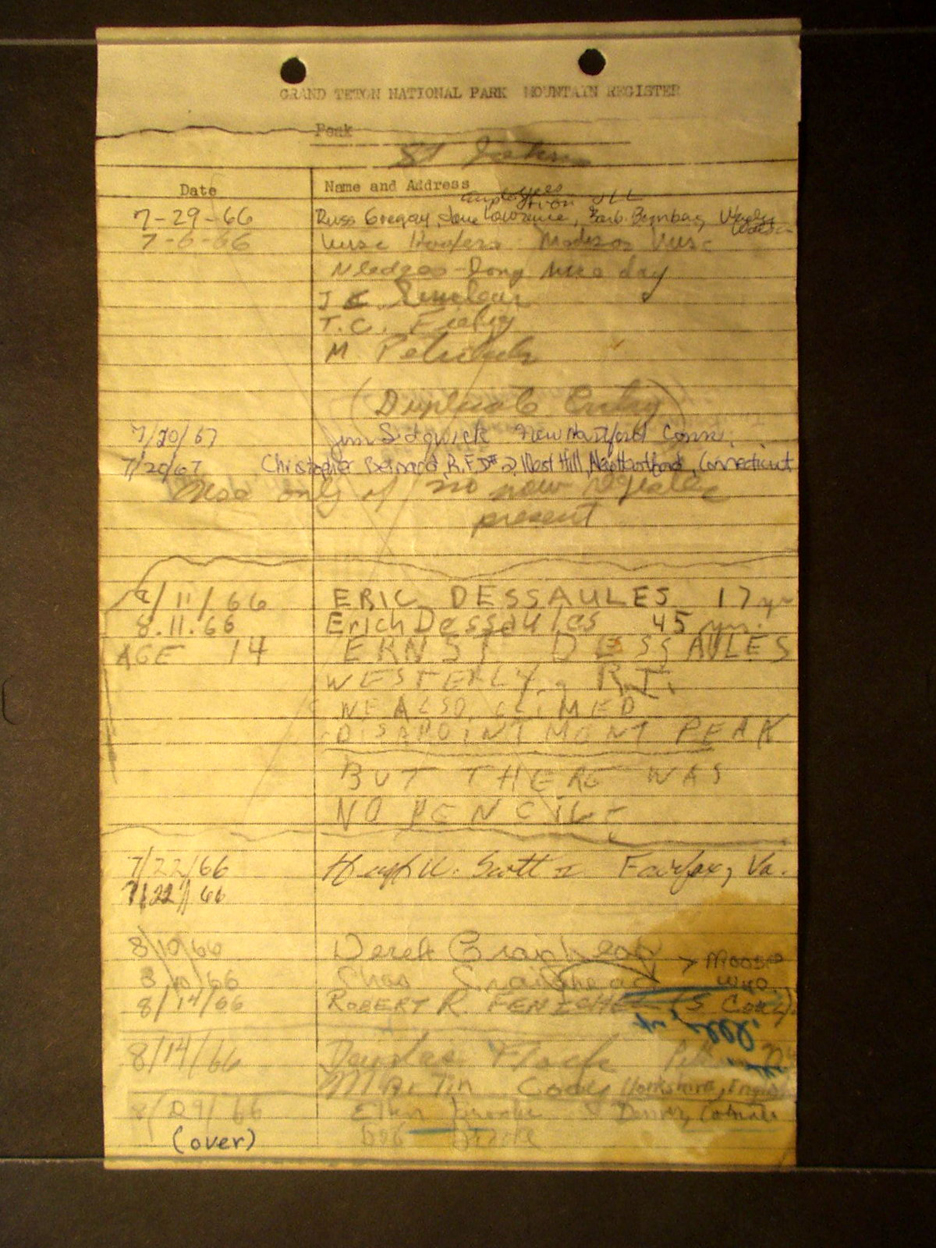 GRAND TETON NATIONAL PARK MOUNTAIN REGISTER
Peak
St Johns
Date Name and Address employees
7-29-66 Russ Gregory, Jane Lawrence,
7-6-66 Wisc Hoofers Madison Wisc
N ledges - long nice day
T.C.
M
(Duplicate Entry)
7/20/67 Jim Sidgwick New Hartford Conn.
7/20/67 Christopher Bernard R.F.D# 2, West Hill, New Hartford, Connecticut
only if no new register
present
8/11/66 ERIC DESSAULES 17 yr
8.11.66 Erich Dessaules 45 yrs.
AGE 14 ERNST DESSAULES
WESTERLY, R.I.
WE ALSO CLIMED
DISAPOINTMONT PEAK
BUT THERE WAS
NO PENCIL
7/22/66 Hugh U. Scott Fairfax, Va.
7/22/66
8/10/66 Derek Craighead > Moose
8/10/66 Chas Craighead Wyo.
8/14/66 ROBERT R.
8/14/66
Martin Cody Yorkshire, England
8/29/66 Denver, Colorado
Bob
(over)